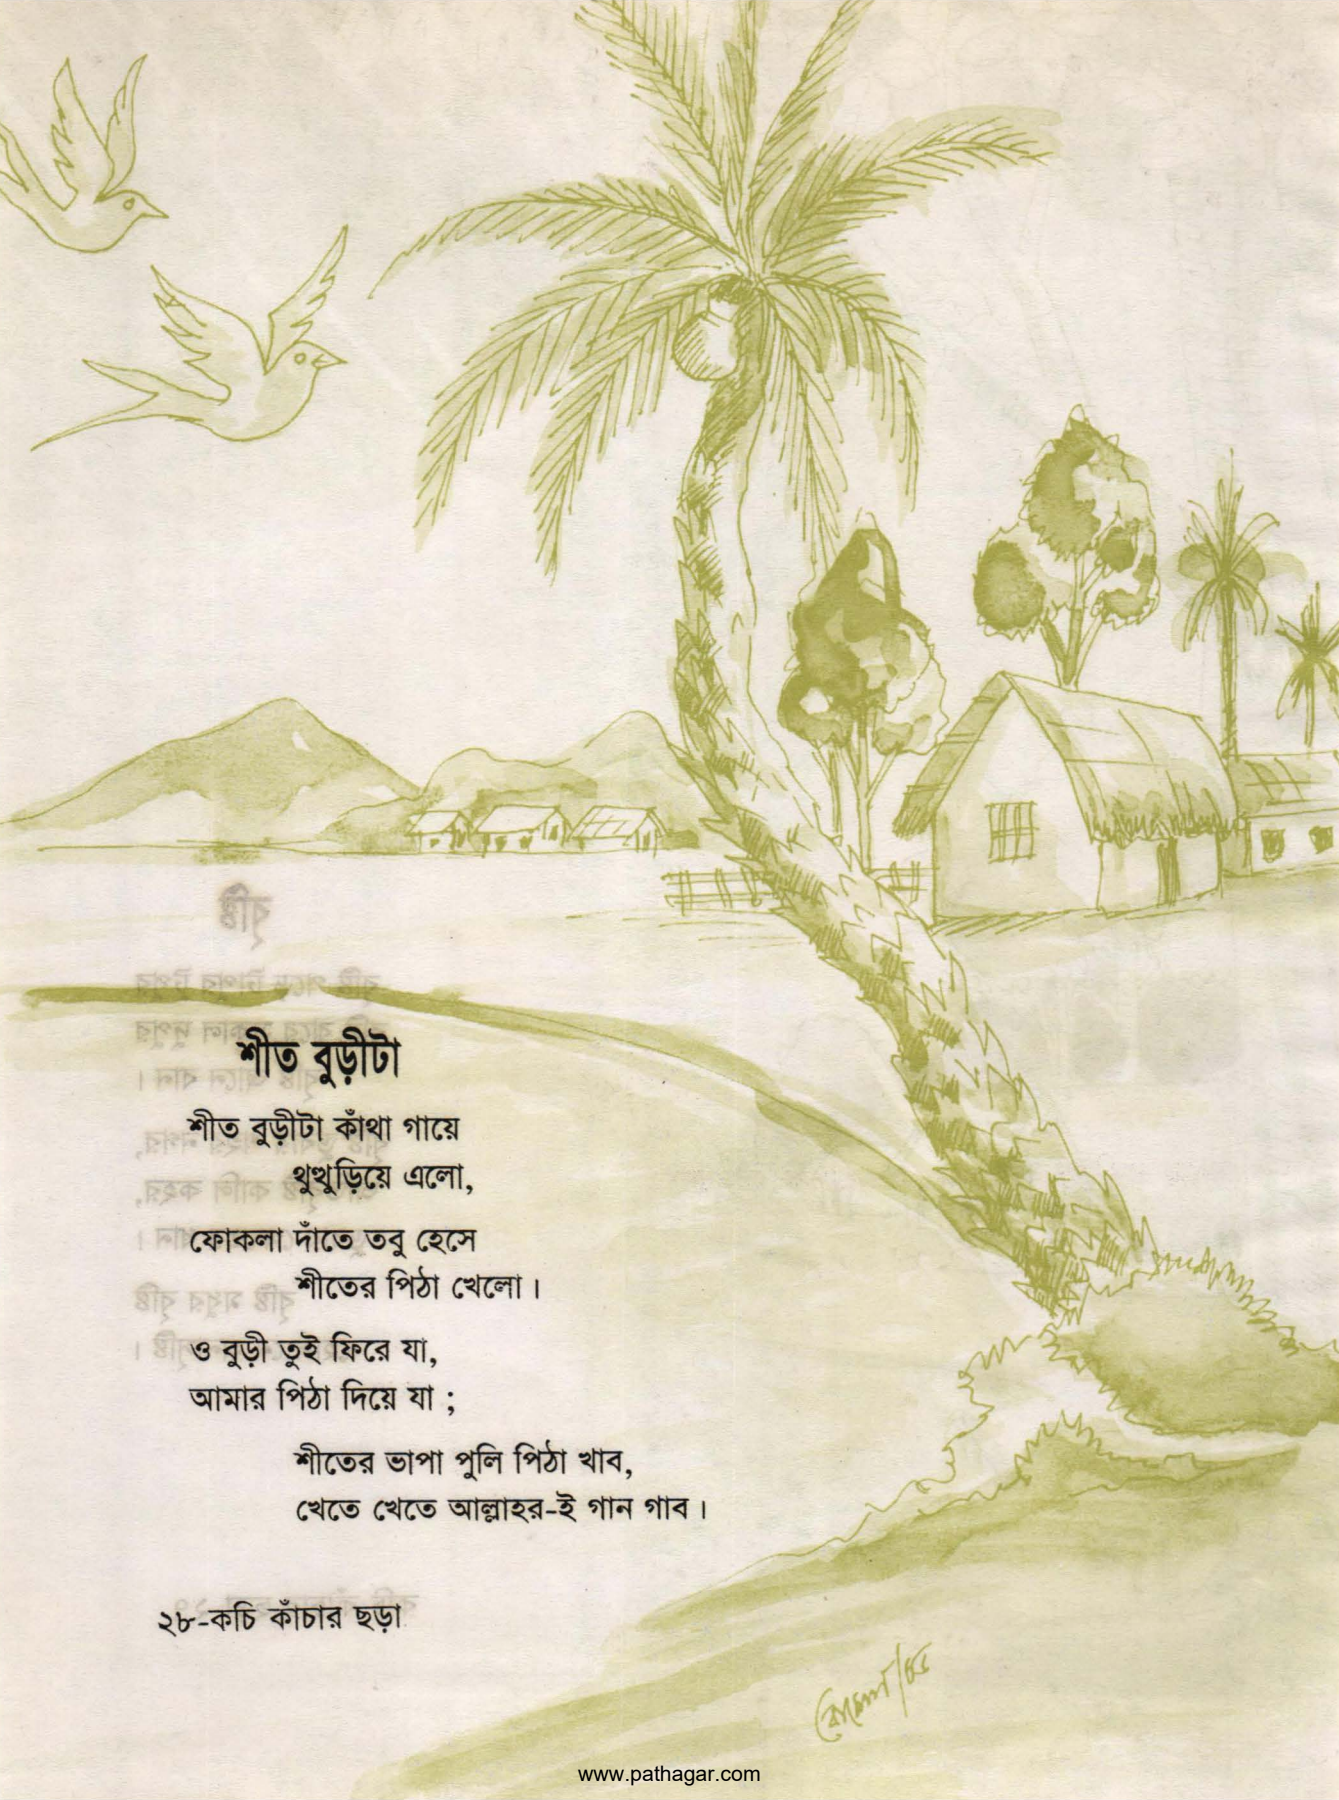 শীত বুড়ীটা
শীত বুড়ীটা কাঁথা গায়ে
থুত্থুড়িয়ে এলো,
ফোকলা দাঁতে তবু হেসে
শীতের পিঠা খেলো।
ও বুড়ী তুই ফিরে যা,
আমার পিঠা দিয়ে যা ;
শীতের ভাপা পুলি পিঠা খাব,
খেতে খেতে আল্লাহর-ই গান গাব।
২৮-কচি কাঁচার ছড়া
www.pathagar.com